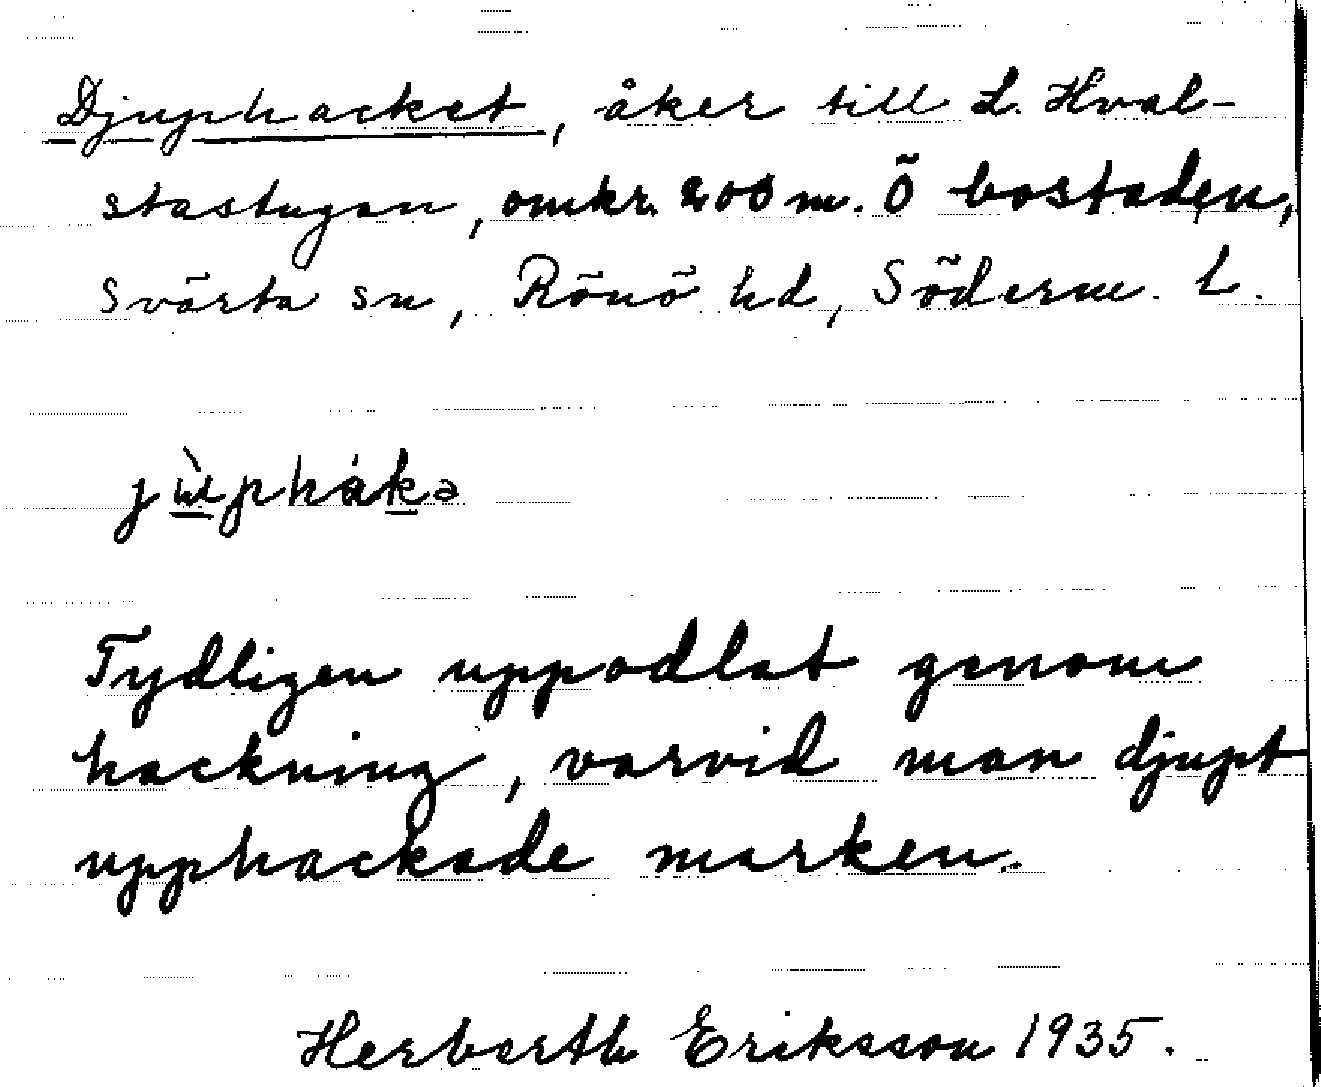 Djuphacket, åker till L. Hval-
stastugan, omkr. 200 m. Ö bostaden,
Svärta sn, Rönö hd, Söderm. L.
jùphákə
Tydligen uppodlat genom
hackning, varvid man djupt
upphackade marken.
Herberth Eriksson 1935.